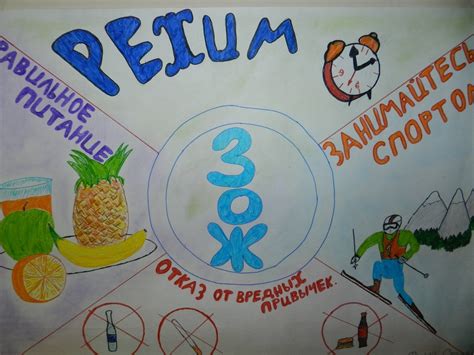 РЕЖИМ
РАВИЛЬНОЕ
ПИТАНИЕ
ЗАНИМАЙТЕСЬ
СПОРТО
ЗОЖ
ОТКАЗ ОТ ВРЕДНЫХ
ПРИВЫЧЕК.